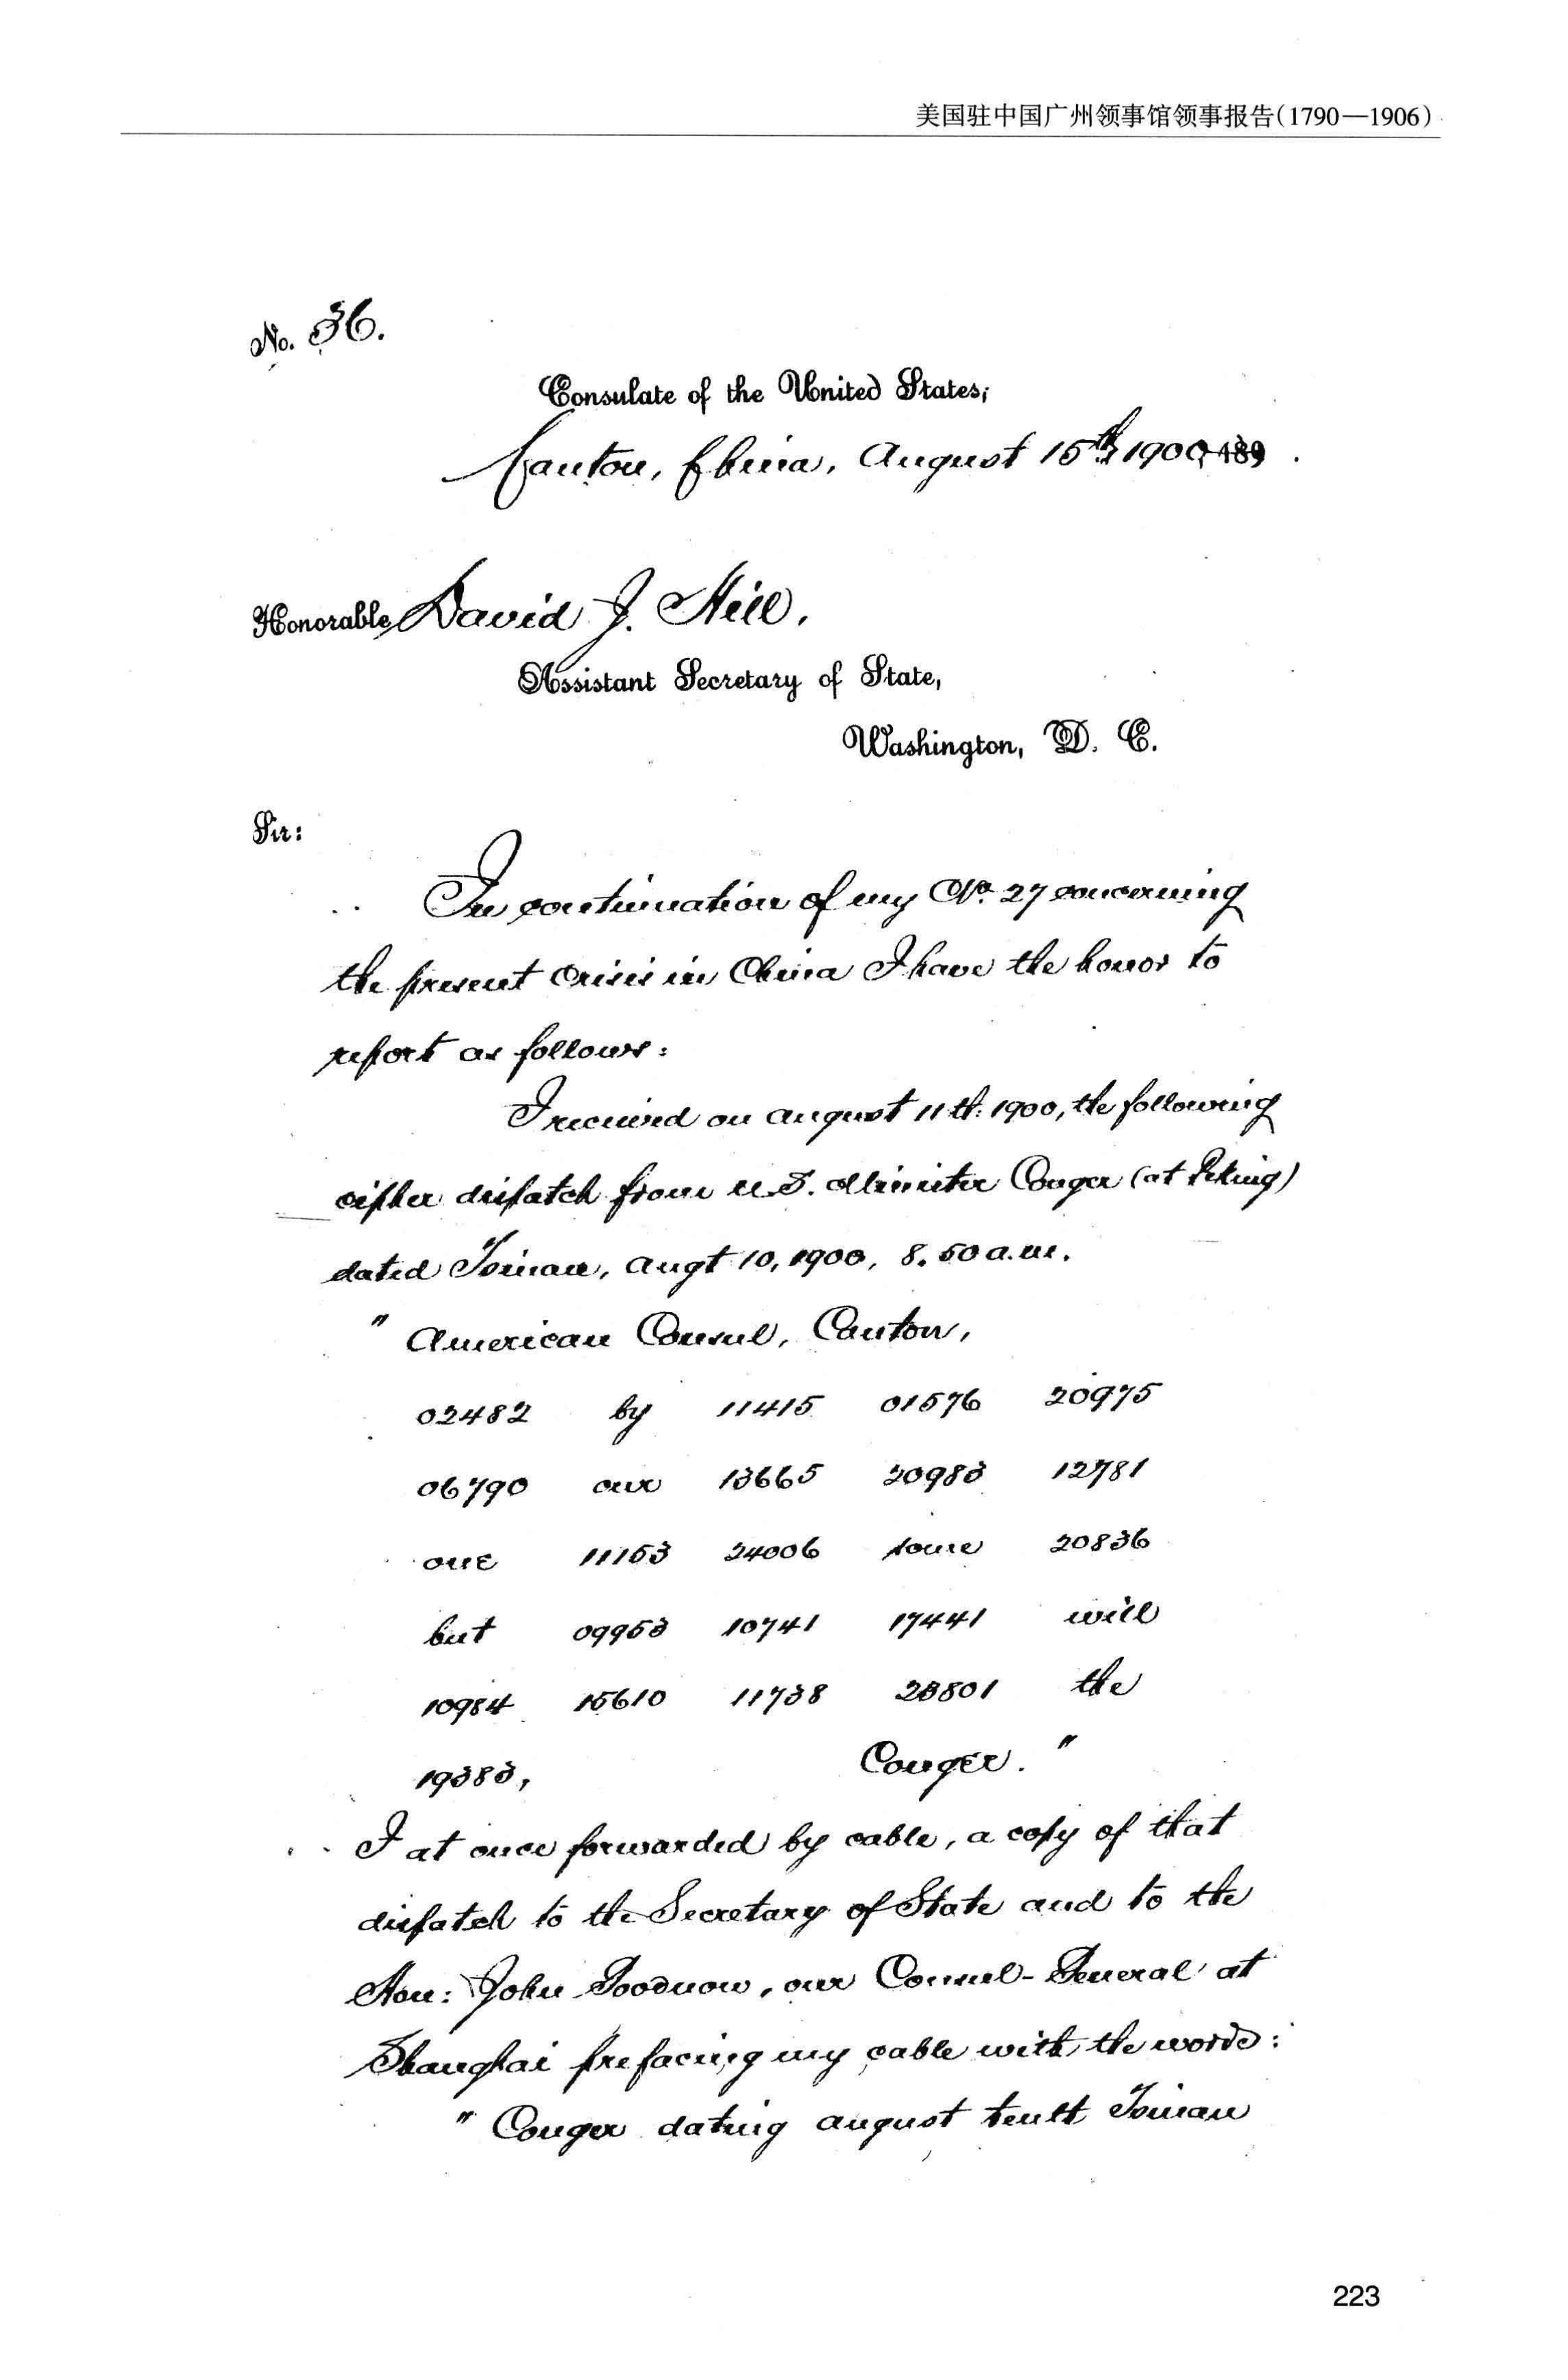 美国驻中国广州领事馆领事报告(1790—1906)
No. 36.
Consulate of the United States,
Canton, China, August 15th 1900, 189
Honorable David J. Hill,
Assistant Secretary of State,
Washington, D. C.
Sir:
In continuation of my No. 27 concerning
the present crisis in China I have the honor to
report as follows:
I received on August 11th: 1900, the following
cipher dispatch from U.S. Minister Conger (at Peking)
dated Tsinan, Augt 10, 1900, 8.50 a.m.
" American Consul, Canton,
02482 by 11415 01576 20975
06790 our 13665 20983 12781
one 11153 24006 some 20836
but 09953 10741 17441 will
10984 15610 11738 23801 the
19383, Conger. "
I at once forwarded by cable, a copy of that
dispatch to the Secretary of State and to the
Hon: John Goodnow, our Consul-General at
Shanghai prefacing my cable with the words:
" Conger dating August tenth Tsinan
223